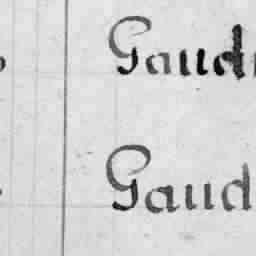 Gaud
Gaud